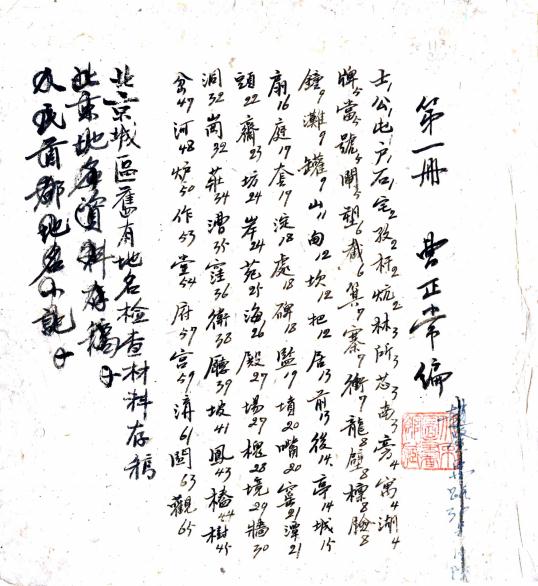 第一册 典正常编
士1公1屯1户1石1宅2孜2杆2炕2林3所3芯3甸3旁4寓4湖4
牌5當5號5閘5塑6截6箕7寨7衛7龍8壁8樓8臉8
鐘9灘9罐9山11甸12坎12把12居13前13後14亭14城15
扇16庭17套17淀18處18碑18監19墳20嘴20窰21潭21
頭22齋23坊24岸24苑25海26殿27場27槐28境29牆30
洞32崗32莊34漕35窪36衛38廳39坡41鳳43橋44樹45
倉47河48炉50作53堂54府57宮59溝61閣63觀65
北京城區舊有地名檢查材料存稿
北京地名資料存稿
人民首都地名小記